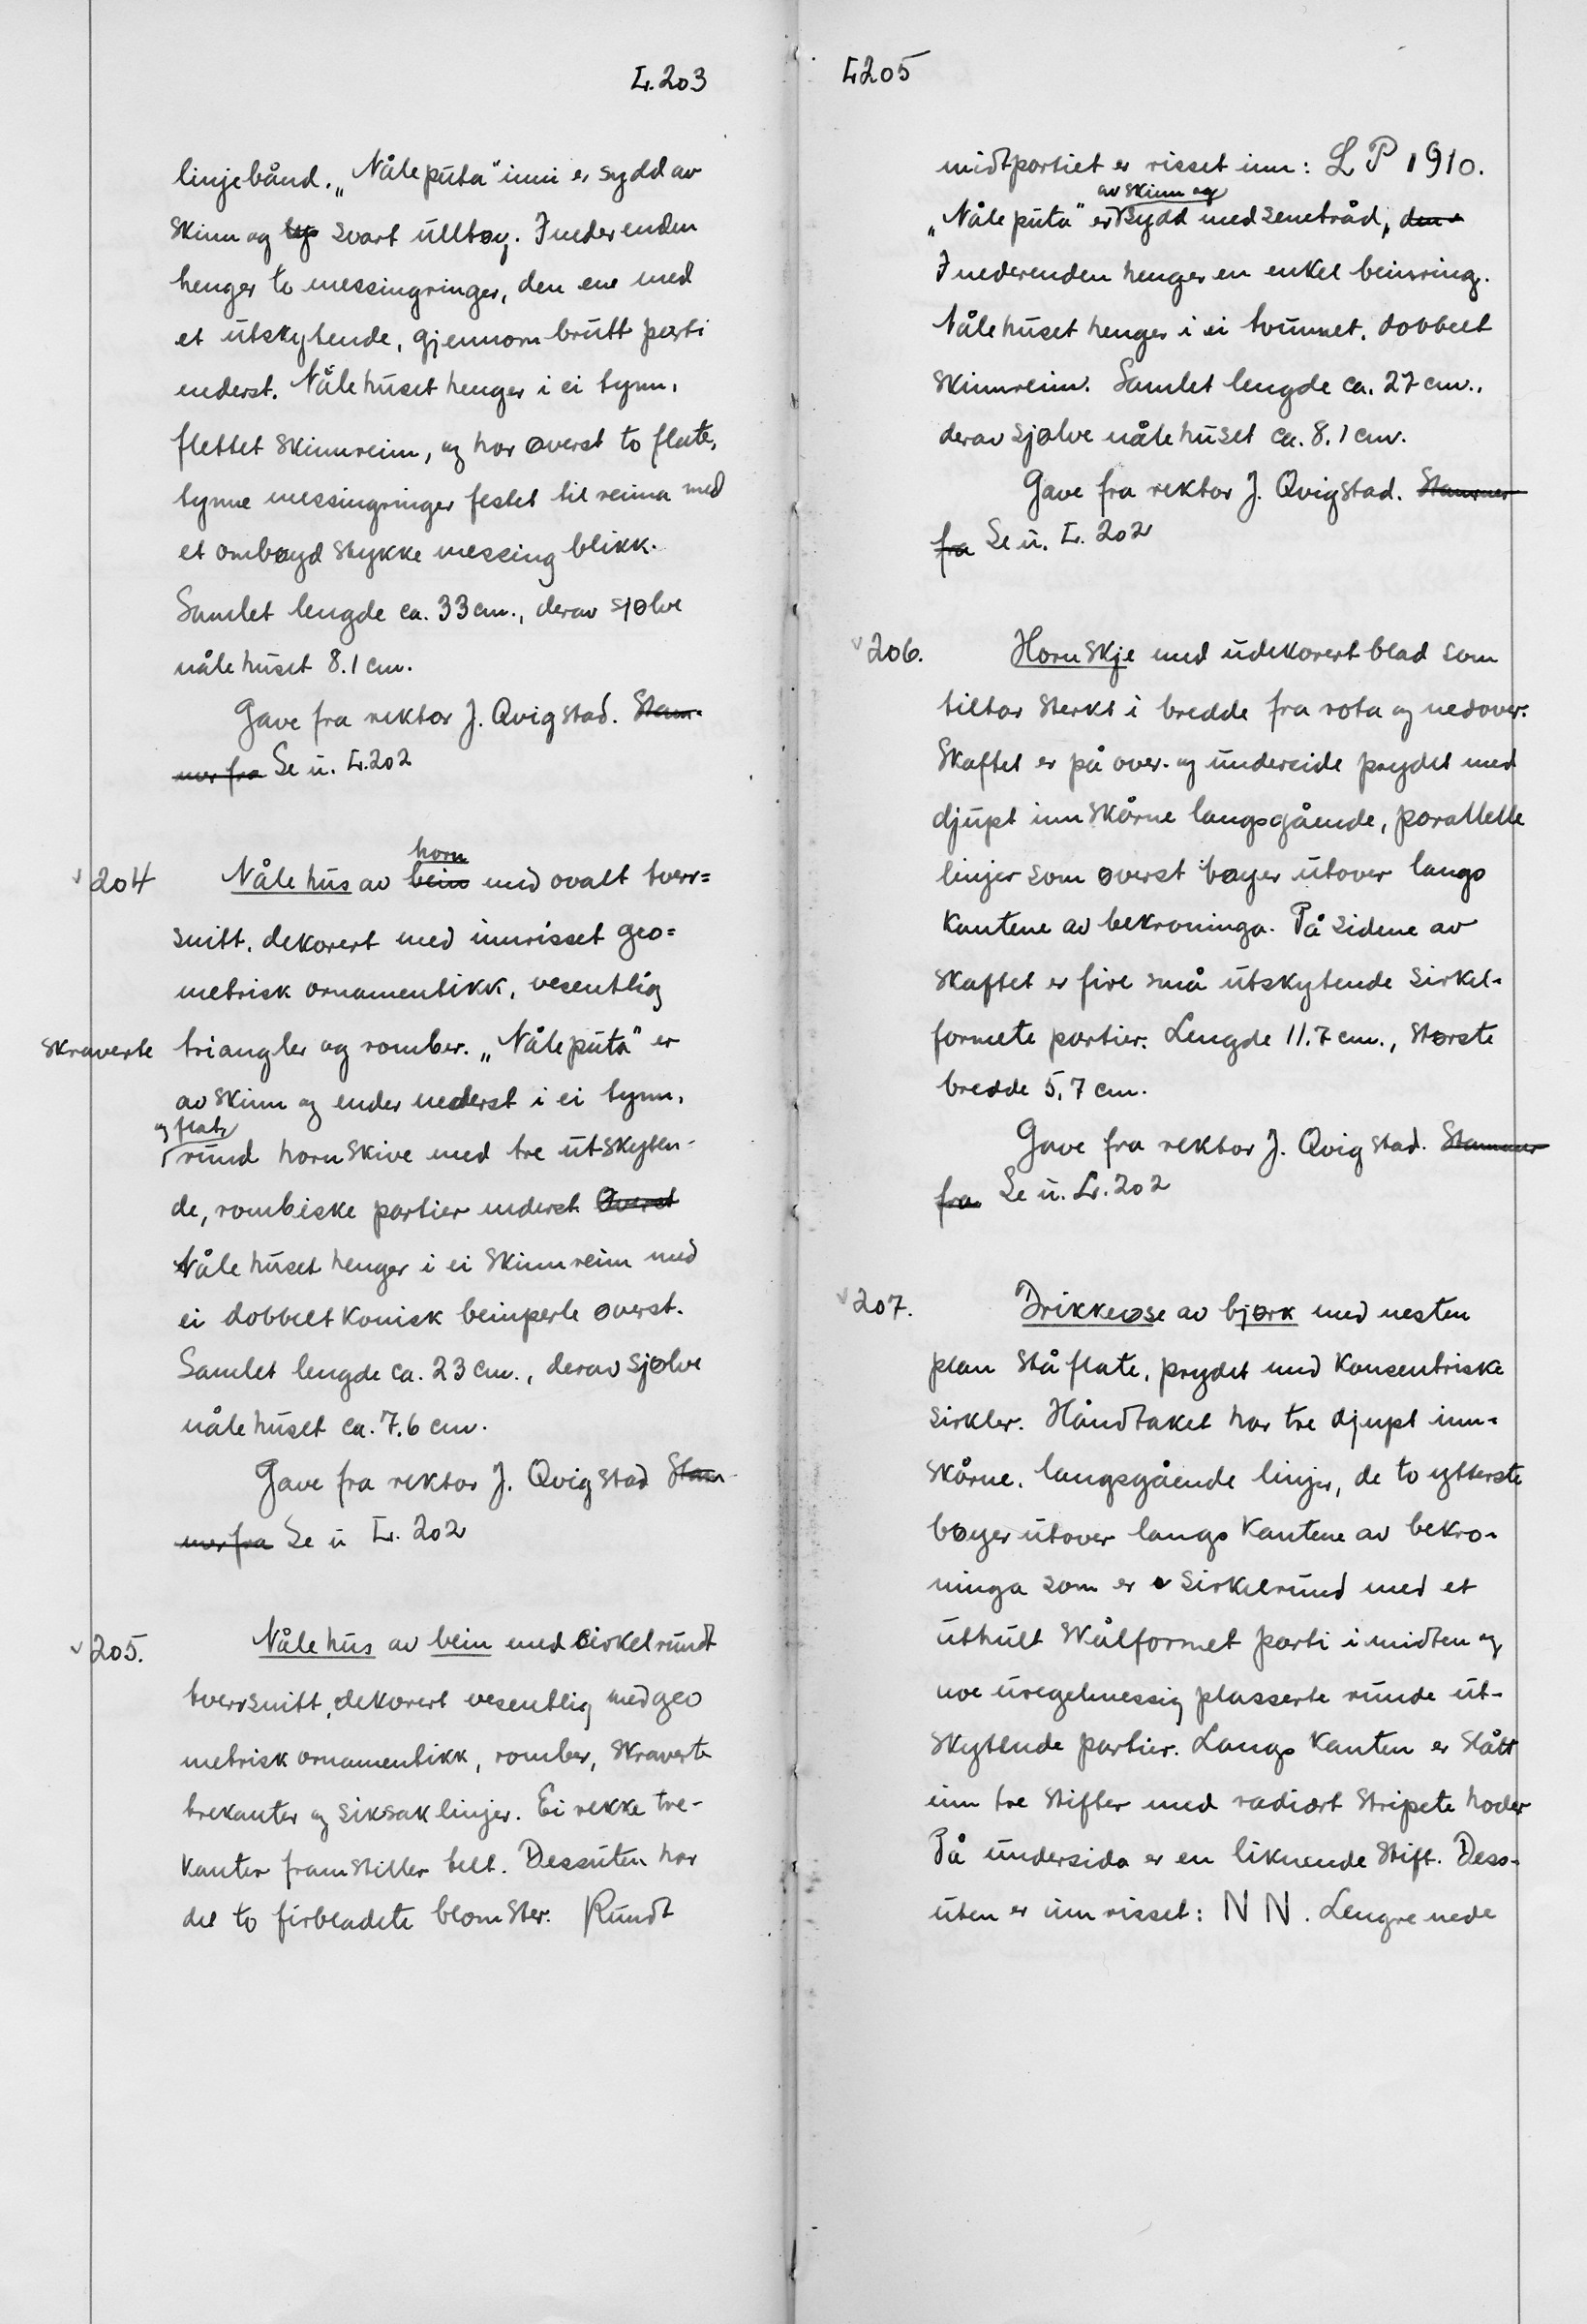 L.203
linjebånd. „Nåleputa" inni er sydd av
skinn og svart ulltøy. I nederenden
henger to messingringer, den ene med
et utskytende, gjennombrutt parti
nederst. Nålehuset henger i ei tynn,
flettet skinnreim, og har øverst to flate,
tynne messingringer festet til reima med
et ombøyd stykke messingblikk.
Samlet lengde ca. 33 cm., derav sjølve
nålehuset 8.1 cm.
Gave fra rektor J. Qvigstad. Stam-
mer fra Se u. L.202
204 Nålehus av bein horn med ovalt tverr=
snitt, dekorert med innrisset geo=
metrisk ornamentikk, vesentlig
skraverte triangler og romber. „Nåleputa" er
av skinn og ender nederst i ei tynn,
og flat,
rund hornskive med tre utskyten-
de, rombiske partier nederst. Øverst
Nålehuset henger i ei skinnreim med
ei dobbelt konisk beinperle øverst.
Samlet lengde ca. 23 cm., derav sjølve
nålehuset ca. 7.6 cm.
Gave fra rektor J. Qvigstad Stam-
mer fra Se u L. 202
205. Nålehus av bein med sirkelrundt
tverrsnitt, dekorert vesentlig med geo
metrisk ornamentikk, romber, skraverte
trekanter og siksaklinjer. Ei rekke tre-
kanter framstiller telt. Dessuten har
det to firbladete blomster. Rundt
L205
midtpartiet er risset inn: L P 1910.
av skinn og
„Nåleputa" er sydd med senetråd, den
I nederenden henger en enkel beinring.
Nålehuset henger i ei tvunnet, dobbelt
skinnreim. Samlet lengde ca. 27 cm.,
derav sjølve nålehuset ca. 8.1 cm.
Gave fra rektor J. Qvigstad. Stammer
fra Se u. L. 202
206. Hornskje med udekorert blad som
tiltar sterkt i bredde fra rota og nedover.
Skaftet er på over- og underside prydet med
djupt innskårne langsgående, parallelle
linjer som øverst bøyer utover langs
kantene av bekroninga. På sidene av
skaftet er fire små utskytende sirkel-
formete partier. Lengde 11.7 cm., største
bredde 5,7 cm.
Gave fra rektor J. Qvigstad. Stammer
fra Se u. L. 202
207. Drikkeøse av bjørk med nesten
plan ståflate, prydet med konsentriske
sirkler. Håndtaket har tre djupt inn-
skårne, langsgående linjer, de to ytterste
bøyer utover langs kantene av bekro-
ninga som er sirkelrund med et
uthult skålformet parti i midten og
noe uregelmessig plasserte runde ut-
skytende partier. Langs kanten er slått
inn tre stifter med radiært stripete hoder
På undersida er en liknende stift. Dess-
uten er innrisset: N N. Lengre nede